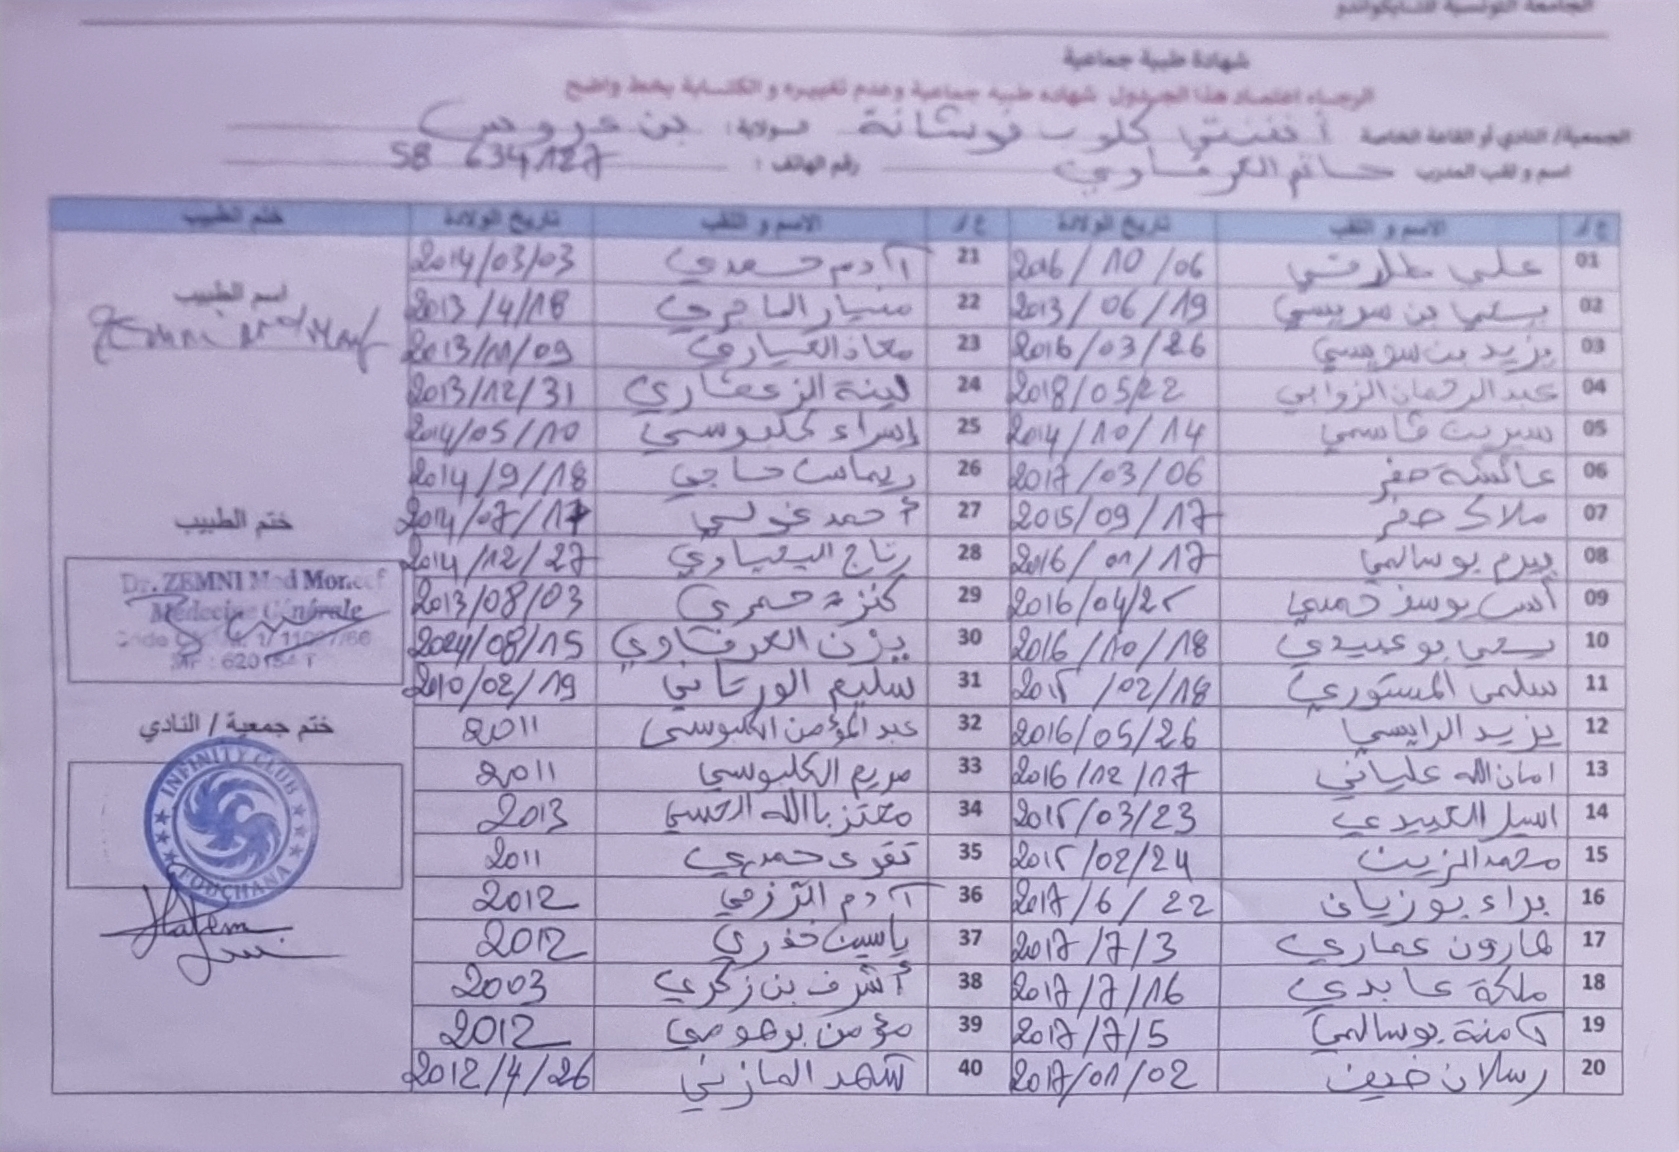 الجامعة التونسية للتايكواندو
شهادة طبية جماعية
الرجاء اعتماد هذا الجدول شهادة طبية جماعية وعدم تغييره و الكتابة بخط واضح
الجمعية/ النادي أو القاعة الخاصة أنفنتي كلوب فوشانة الولاية: بن عروس
اسم و لقب المدرب حاتم العرفاوي رقم الهاتف: 58 634127
ع/ر الاسم و اللقب تاريخ الولادة ع/ر الاسم و اللقب تاريخ الولادة ختم الطبيب
01 علي 2016/10/06 21 آدم حمدي 2014/03/03
اسم الطبيب
02 يحيى بن 2013/06/19 22 الماجري 2013/4/18
03 يزيد بن سويسي 2016/03/26 23 معاذ العياري 2013/11/09
04 عبد الرحمان الزوابي 2018/05/22 24 لينة الزعفاري 2013/12/31
05 سيرين قاسمي 2014/10/14 25 إسراء كلبوسي 2014/05/10
06 عائشة جفر 2017/03/06 26 ريماس حاجي 2014/9/18
07 ملاك جفر 2015/09/17 27 أحمد غولي 2014/07/17
ختم الطبيب
08 بيرم بوسالمي 2016/01/17 28 رتاج اليحياوي 2014/12/27
Dr. ZEMNI Med Moncef
Médecine Générale
09 أنس يوسف حميدي 2016/04/25 29 كنزة حمري 2013/08/03
10 يحيى بوعبيدي 2016/10/18 30 يزن العرفاوي 2024/08/15
11 سلمى المستوري 2015/02/18 31 سليم الورتاني 2010/02/19
12 يزيد الرايسي 2016/05/26 32 عبد المؤمن الكلبوسي 2011
ختم جمعية / النادي
13 امان الله علياني 2016/12/17 33 مريم الكلبوسي 2011
INFINITY CLUB
FOUCHANA
14 اسيل العبيدي 2015/03/23 34 معتز بالله الحسي 2013
15 محمد الزين 2015/02/24 35 تقوى حمدي 2011
16 براء بوزيان 2017/6/22 36 آدم الترزي 2012
Hatem
17 هارون عماري 2017/7/3 37 ياسين 2012
18 ملكة عابدي 2017/7/16 38 أشرف بن زكري 2003
19 آمنة بوسالمي 2017/7/5 39 مؤمن برهومي 2012
20 رسلان ضيف 2017/01/02 40 شهد المازني 2012/4/26